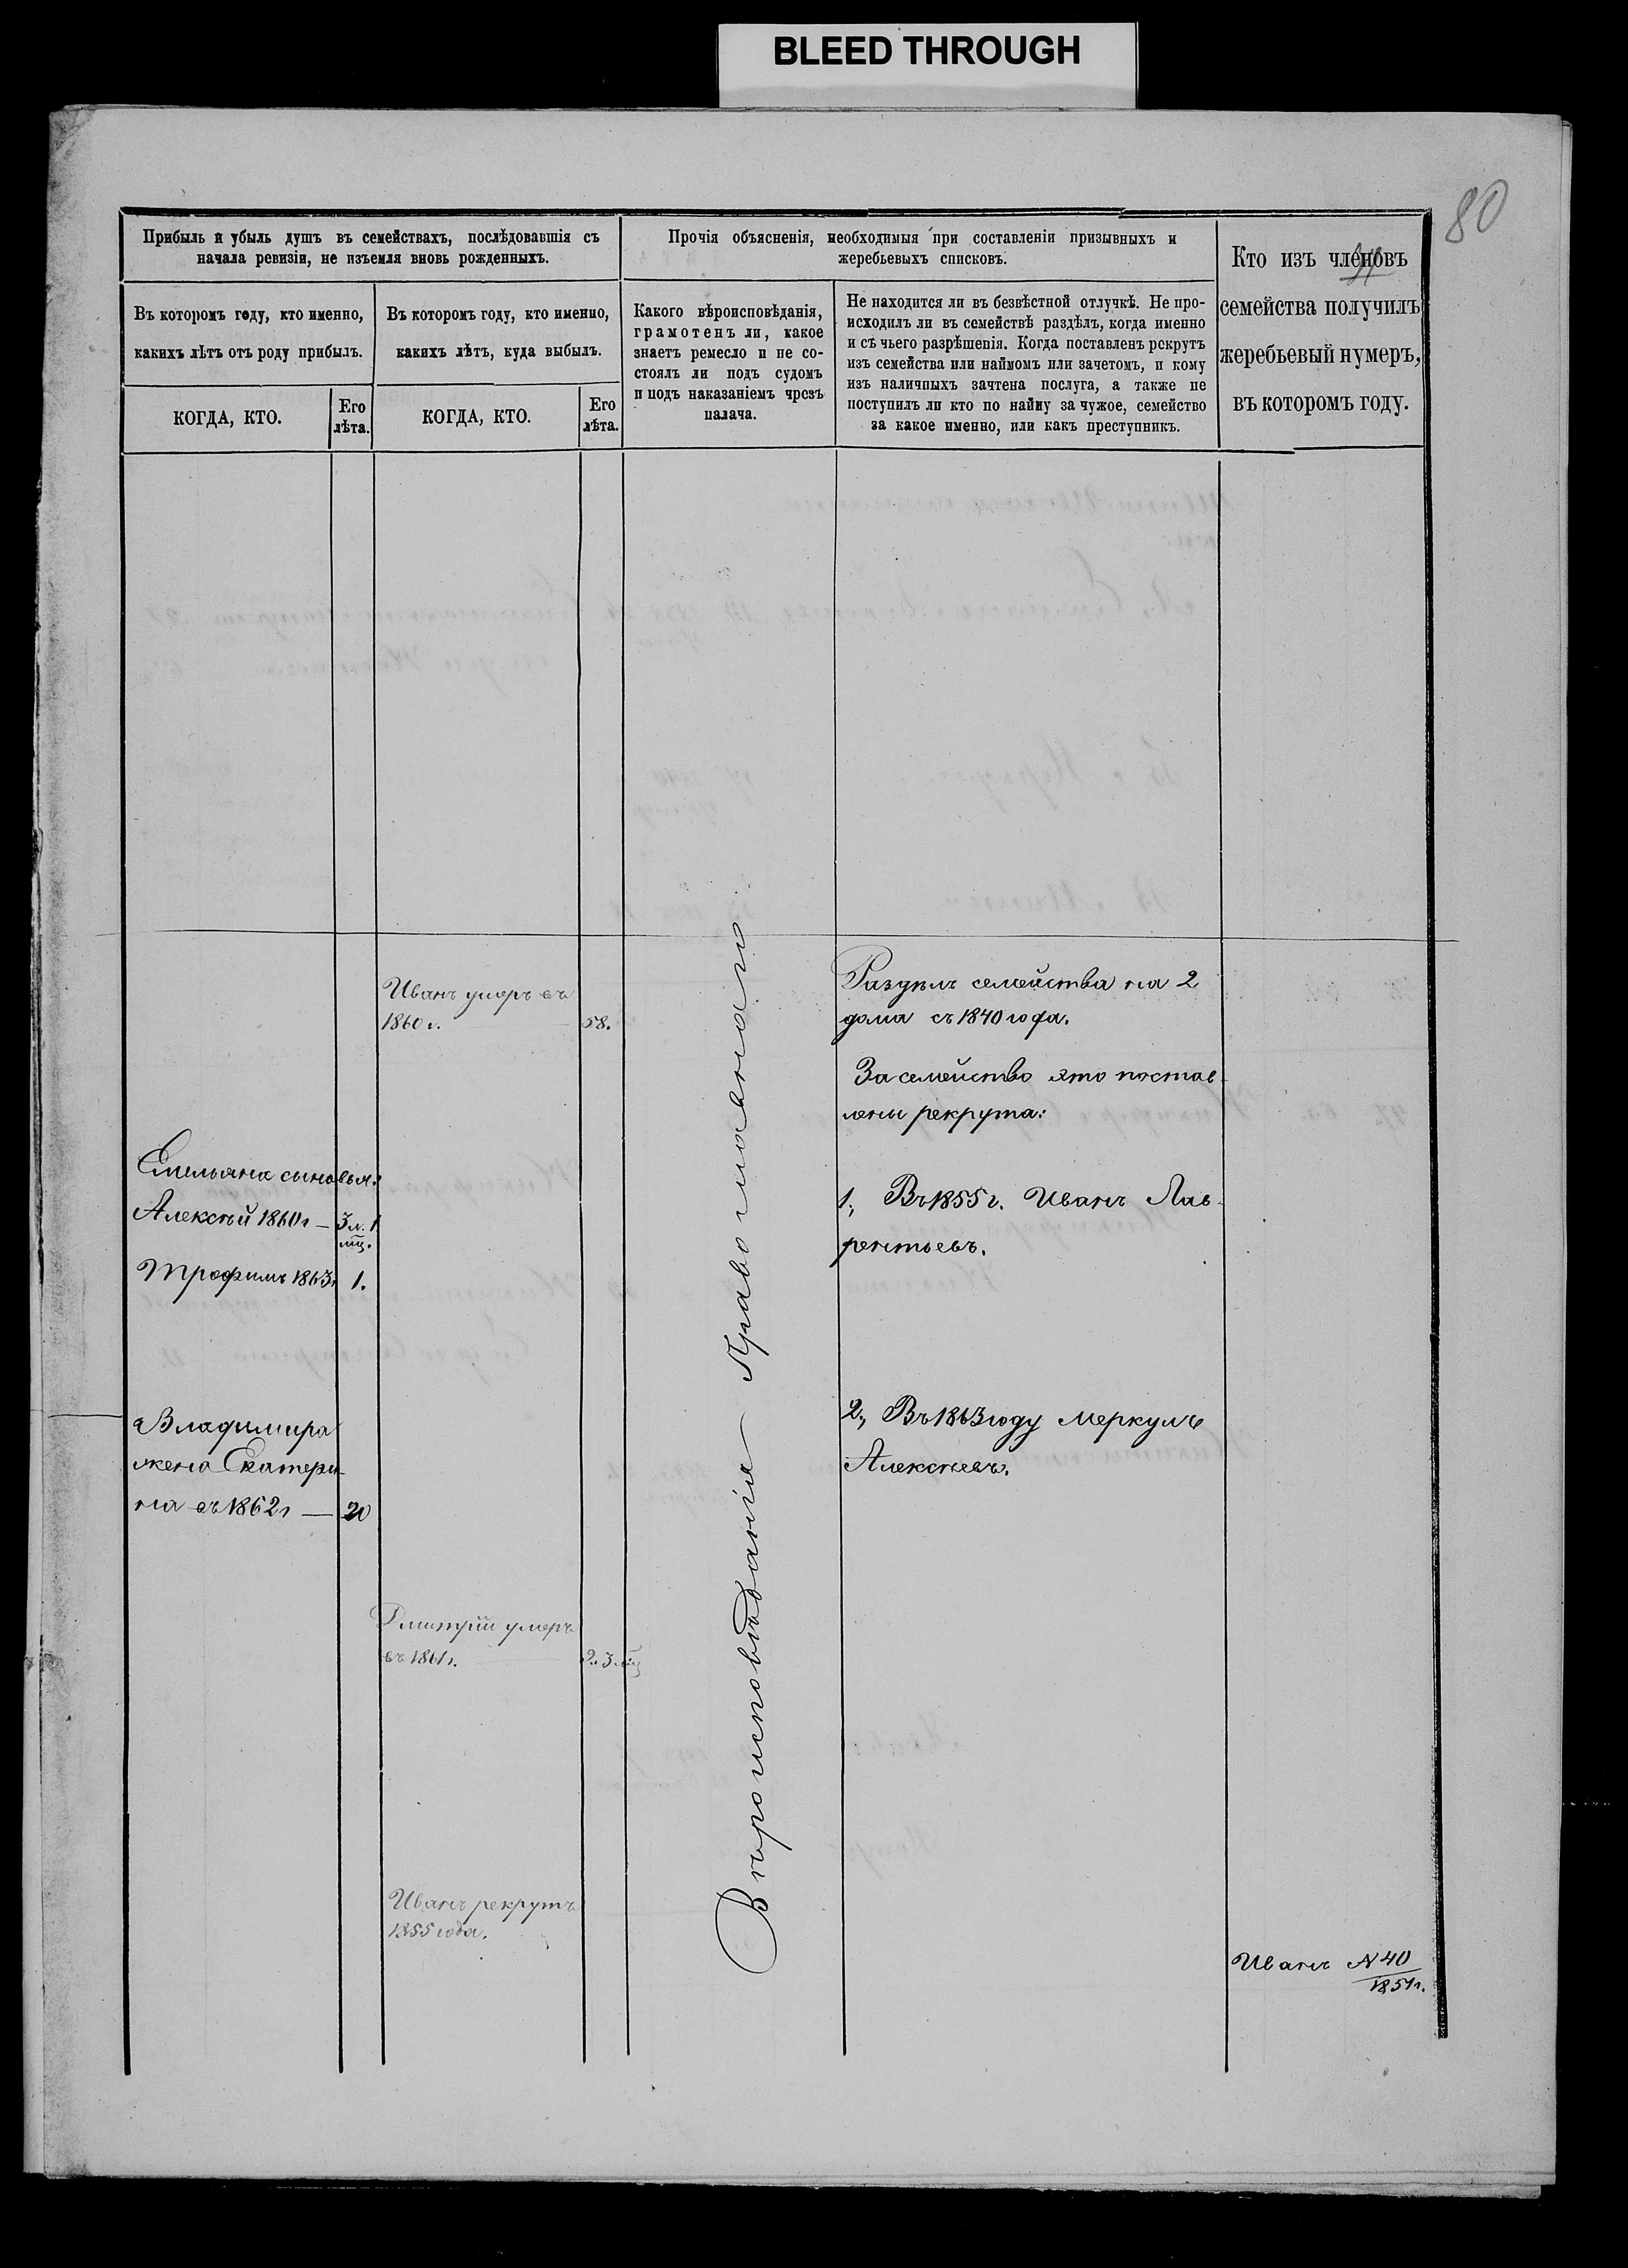 BLEED THROUGH
80
Прибыль и убыль душъ въ семействахъ, послѣдовавшія съ
начала ревизіи, не изъемля вновь рожденныхъ.
Въ которомъ году, кто именно,
какихъ лѣтъ отъ роду прибылъ.
КОГДА, КТО.
Его
лѣта.
Въ которомъ году, кто именно,
какихъ лѣтъ, куда выбылъ.
КОГДА, КТО.
Его
лѣта.
Прочія объясненія, необходимыя при составленіи призывныхъ и
жеребьевыхъ списковъ.
Какого вѣроисповѣданія,
грамотенъ ли, какое
знаетъ ремесло и не со-
стоялъ ли подъ судомъ
и подъ наказаніемъ чрезъ
палача.
Не находится ли въ безвѣстной отлучкѣ. Не про-
исходилъ ли въ семействѣ раздѣлъ, когда именно
и съ чьего разрѣшенія. Когда поставленъ рекрутъ
изъ семейства или наймомъ или зачетомъ, и кому
изъ наличныхъ зачтена послуга, а также не
поступилъ ли кто по найму за чужое, семейство
за какое именно, или какъ преступникъ.
Кто изъ членовъ
семейства получилъ
жеребьевый нумеръ,
въ которомъ году.
Иванъ умеръ въ
1860 г. 58.
Раздѣлъ семейства на 2
дома съ 1840 года.
За семейство это постав-
лены рекрута:
Емельяна сыновья:
Алексѣй 1860 г — 3 л. 1
мц.
Трофимъ 1863 г 1.
1., Въ 1855 г. Иванъ Лав-
рентьевъ.
Владимира
жена Екатери-
на въ 1862 г — 20
2., Въ 1863 году Меркулъ
Алексѣевъ.
Дмитрій умеръ
въ 1861 г. 2. 3 мц
Вѣроисповѣданія Православнаго
Иванъ рекрутъ
1855 года.
Иванъ N 40
1851 г.